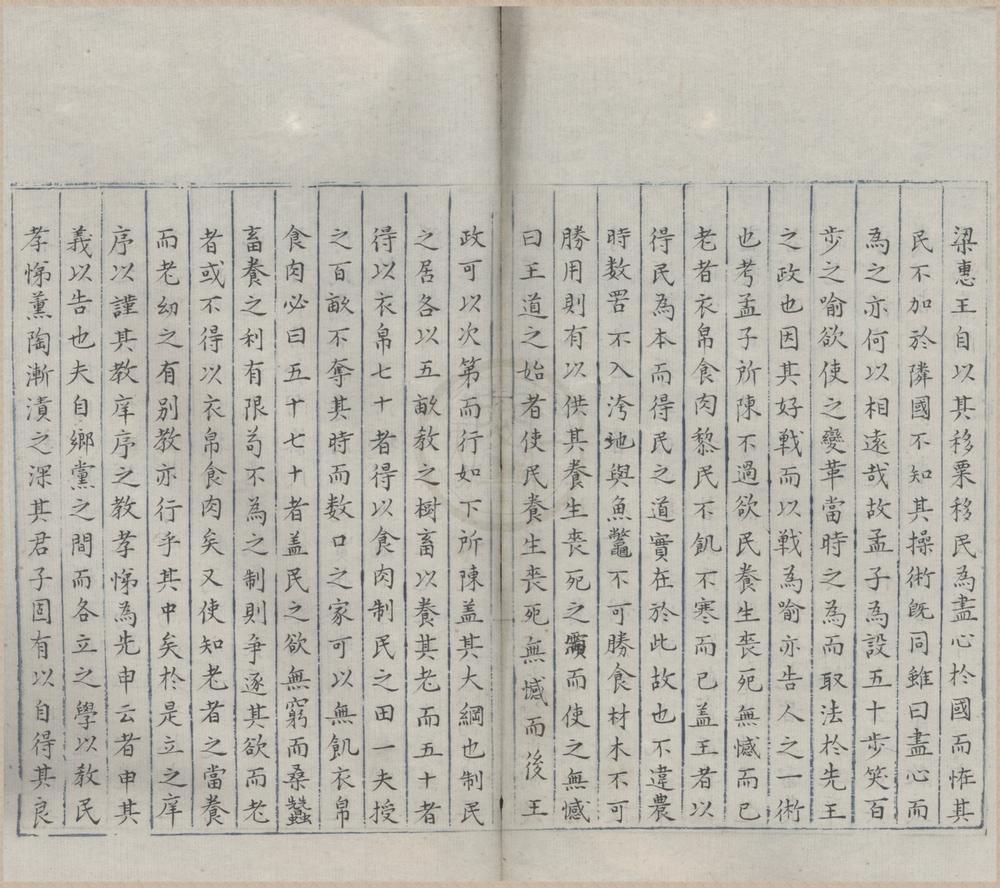 梁惠王自以其移粟移民為盡心於國而恠其
民不加於隣國不知其操術既同雖曰盡心而
為之亦何以相遠哉故孟子為設五十步笑百
步之喻欲使之變革當時之為而取法於先王
之政也因其好戰而以戰為喻亦告人之一術
也考孟子所陳不過欲民養生喪死無憾而已
老者衣帛食肉黎民不飢不寒而已盖王者以
得民為本而得民之道實在於此故也不違農
時数罟不入洿地與魚鼈不可勝食材木不可
勝用則有以供其養生喪死之需而使之無憾
曰王道之始者使民養生喪死無憾而後王
政可以次第而行如下所陳盖其大綱也制民
之居各以五畝教之樹畜以養其老而五十者
得以衣帛七十者得以食肉制民之田一夫授
之百畝不奪其時而数口之家可以無飢衣帛
食肉必曰五十七十者盖民之欲無窮而桑蠶
畜養之利有限苟不為之制則爭逐其欲而老
者或不得以衣帛食肉矣又使知老者之當養
而老幼之有别教亦行乎其中矣於是立之庠
序以謹其教庠序之教孝悌為先申云者申其
義以告也夫自鄉黨之間而各立之學以教民
孝悌薰陶漸漬之深其君子固有以自得其良